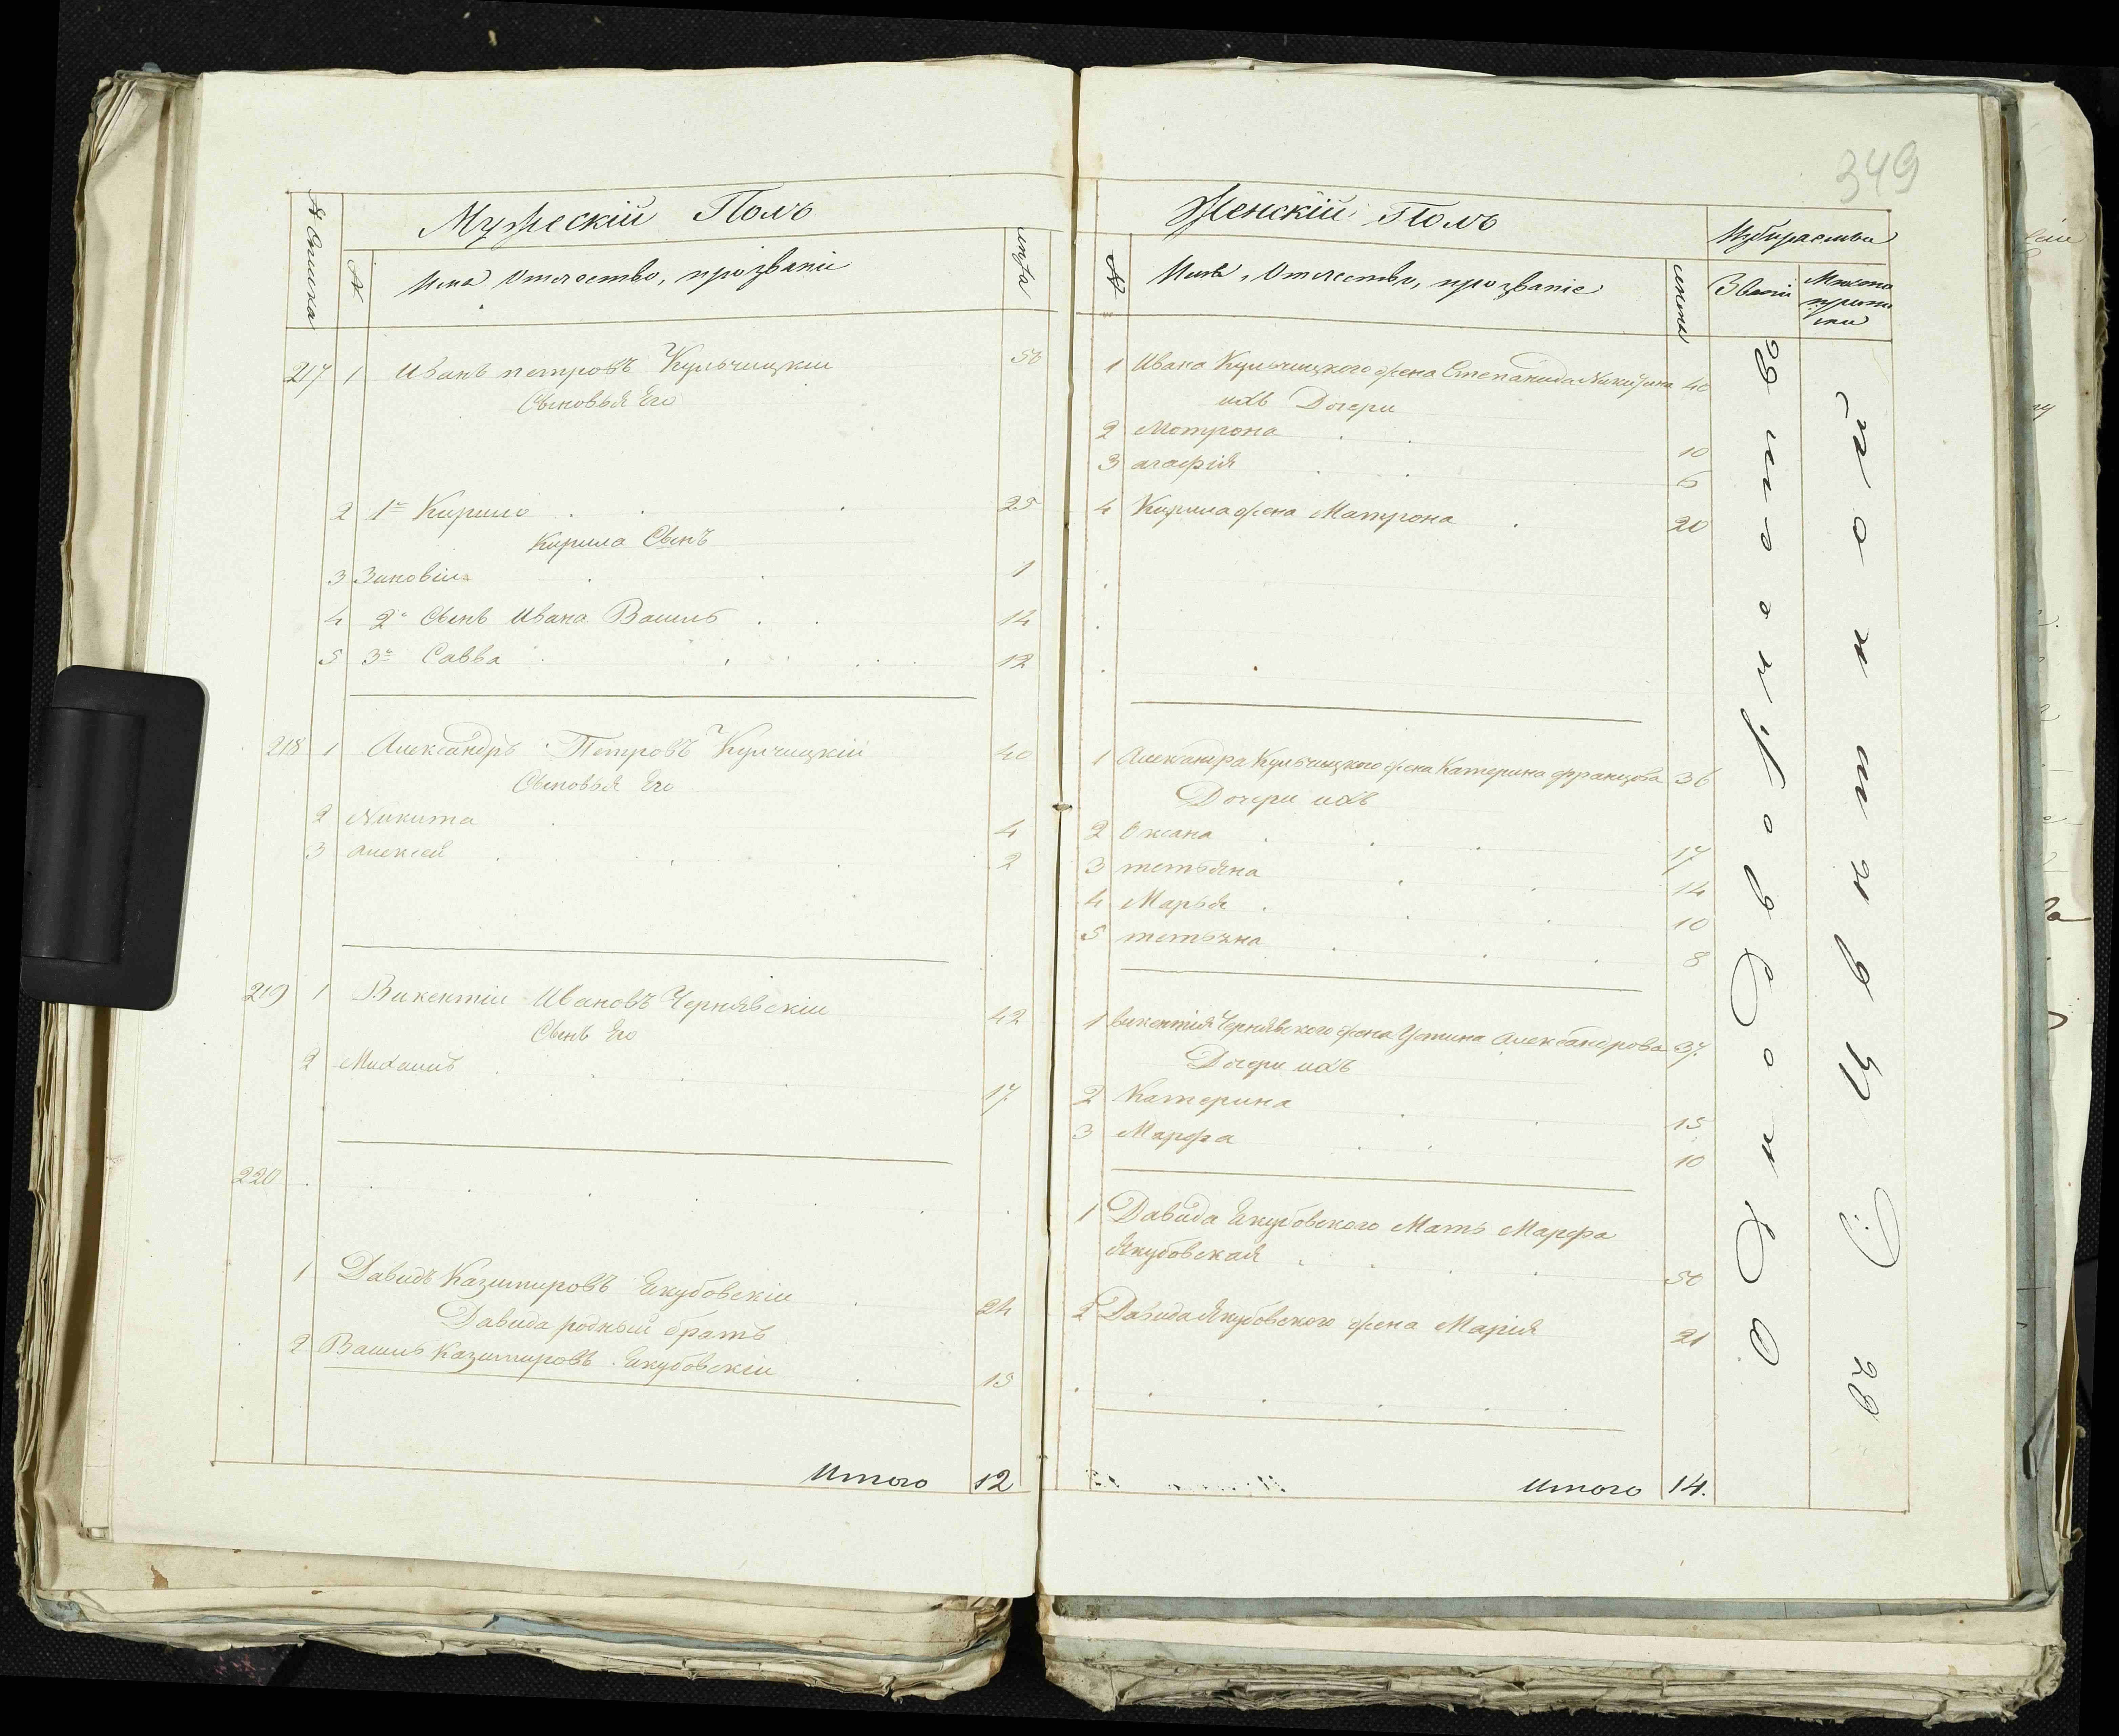 349
№ Списка
Мужескій Полъ
№
Имя Отечество, прозваніи
лѣта
217 1 Иванъ петровъ Кульчицкіи 50
Сыновья Его
2 1й Кирило 25
Кирила Сынъ
3 Зиновіи 1
4 2й Сынъ Ивана Василь 14
5 3й Савва 12
218 1 Александръ Петровъ Кулчицкій 40
Сыновья Его
2 Никита 4
3 алексей 2
219 1 Викентіи Ивановъ Чернявскіи 42
Сынъ Его
2 Михаилъ 17
220
1 Давидъ Казимировъ Якубовскіи 24
Давида родный братъ
2 Василь Казимировъ Якубовскіи 13
Итого 12
Женскій Полъ
Избираемыи
№
Имя, Отечество, прозваніе
лѣты
Званіи
1 Ивана Кульчицкого жена Степанида Никитина 40
ихъ Дочери
2 Мотрона 10
3 агафія 6
4 Кирила жена Матрона 20
1 Александра Кульчицкого жена Катерина францова 36
Дочери ихъ
2 Оксана 17
3 тетьяна 14
4 Марья 10
5 тетьяна 8
1 викентія Чернявского жена Устина Александрова 37
Дочери ихъ
2 Катерина 15
3 Марфа 10
1 Давида Якубовского Мать Марфа
Якубовская 50
2 Давида Якубовского жена Марія 21
Итого 14.